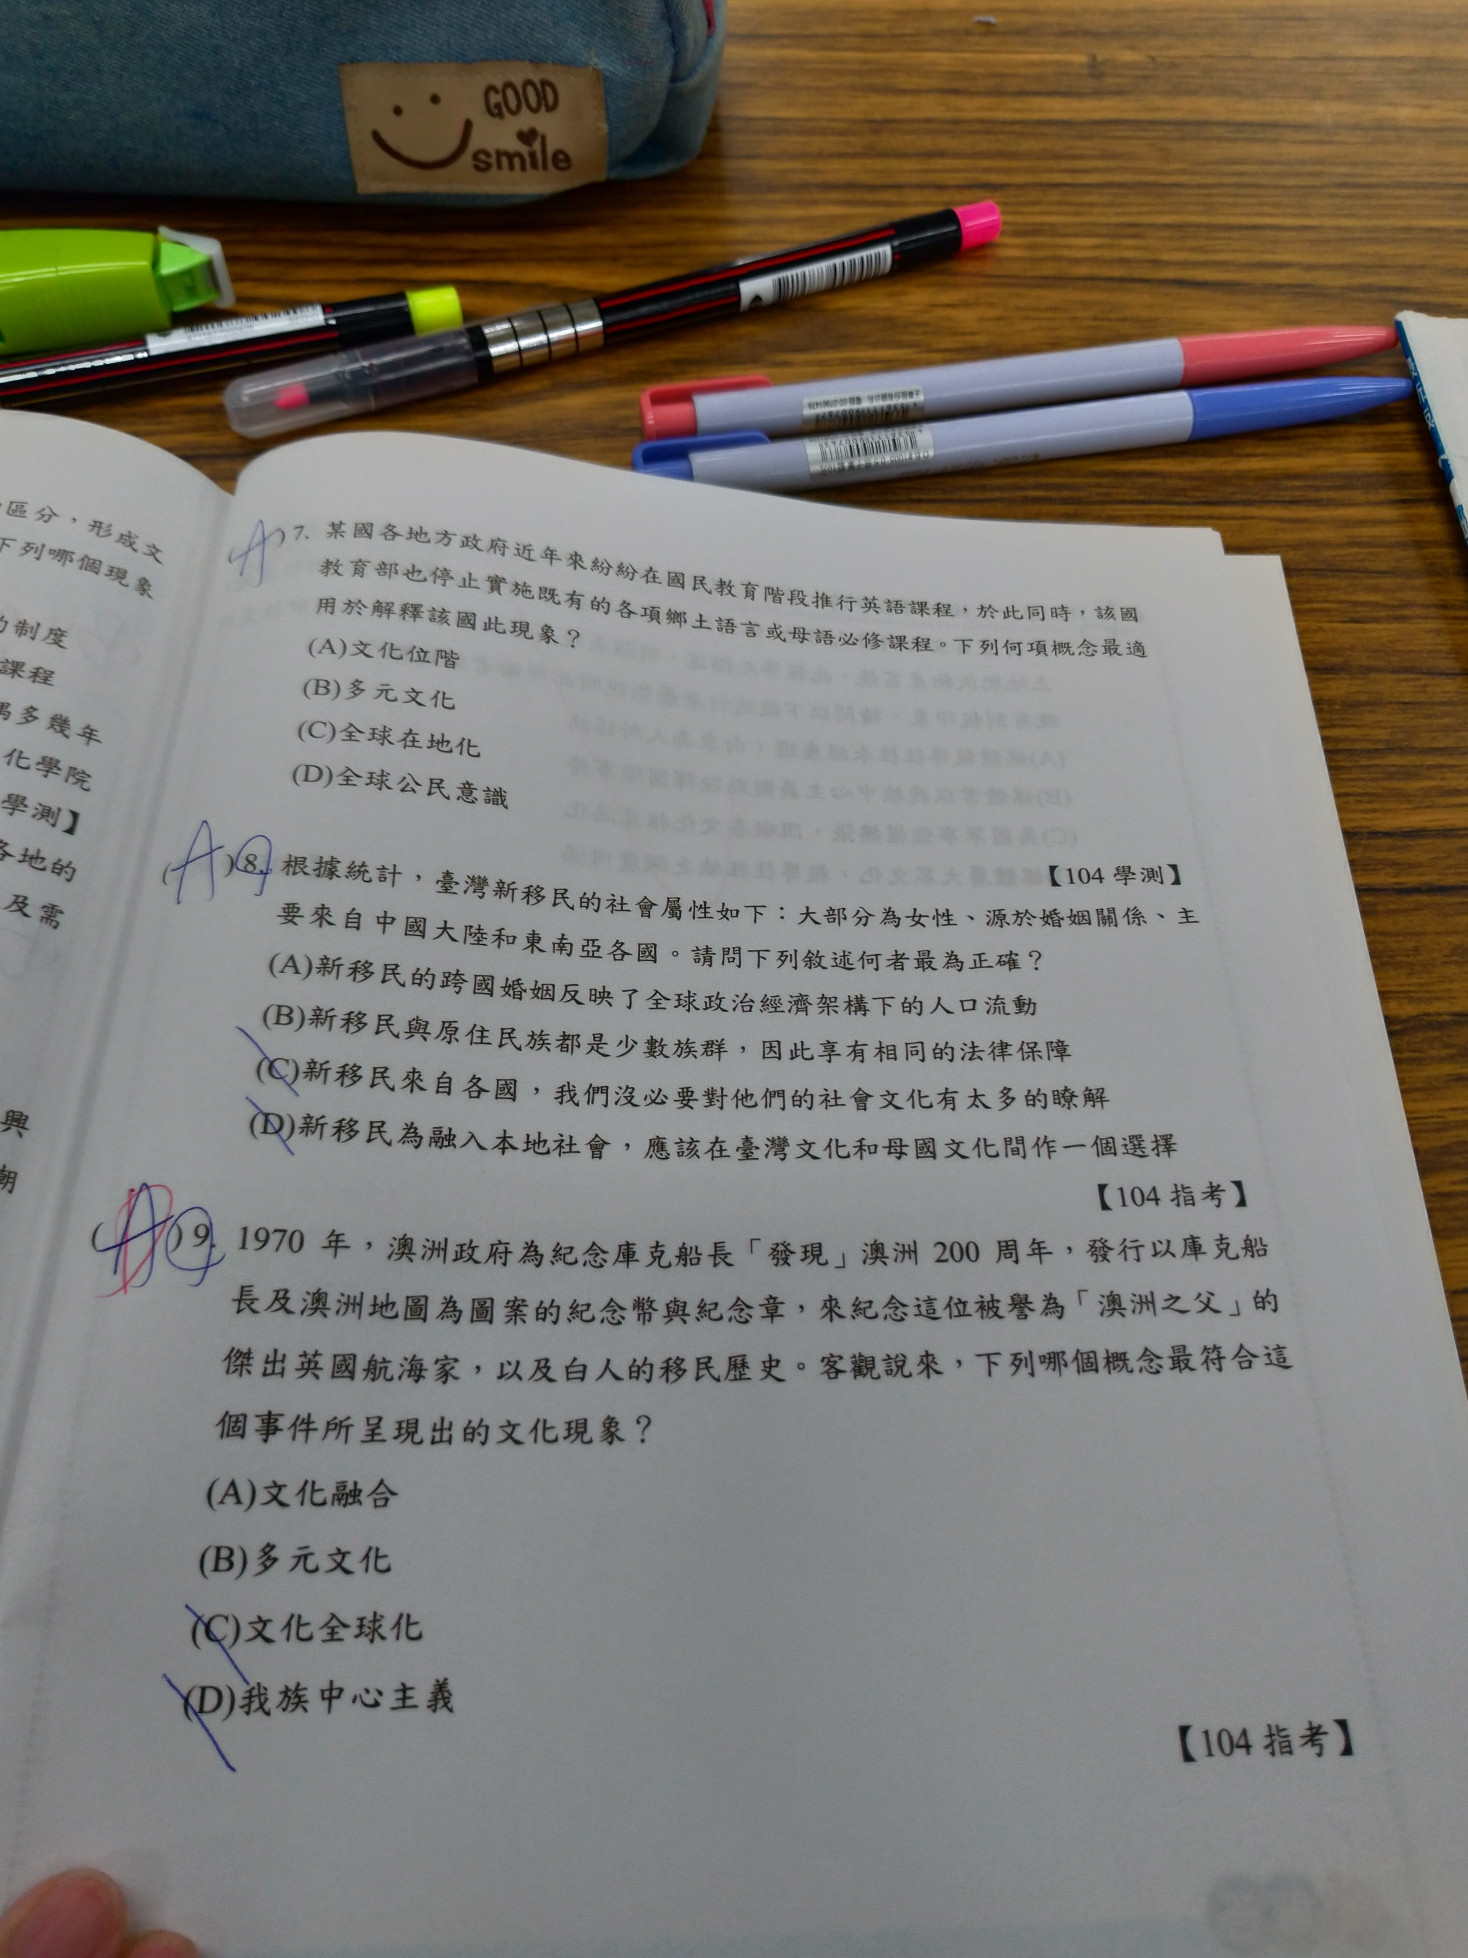 GOOD
smile
區分，形成文
下列哪個現象
的制度
課程
馬多幾年
化學院
學測】
各地的
及需
興
朝
A)7. 某國各地方政府近年來紛紛在國民教育階段推行英語課程，於此同時，該國
教育部也停止實施既有的各項鄉土語言或母語必修課程。下列何項概念最適
用於解釋該國此現象？
(A)文化位階
(B)多元文化
(C)全球在地化
(D)全球公民意識
【104 學測】
(A)8. 根據統計，臺灣新移民的社會屬性如下：大部分為女性、源於婚姻關係、主
要來自中國大陸和東南亞各國。請問下列敘述何者最為正確？
(A)新移民的跨國婚姻反映了全球政治經濟架構下的人口流動
(B)新移民與原住民族都是少數族群，因此享有相同的法律保障
(C)新移民來自各國，我們沒必要對他們的社會文化有太多的瞭解
(D)新移民為融入本地社會，應該在臺灣文化和母國文化間作一個選擇
【104 指考】
(A D)9. 1970 年，澳洲政府為紀念庫克船長「發現」澳洲 200 周年，發行以庫克船
長及澳洲地圖為圖案的紀念幣與紀念章，來紀念這位被譽為「澳洲之父」的
傑出英國航海家，以及白人的移民歷史。客觀說來，下列哪個概念最符合這
個事件所呈現出的文化現象？
(A)文化融合
(B)多元文化
(C)文化全球化
(D)我族中心主義
【104 指考】